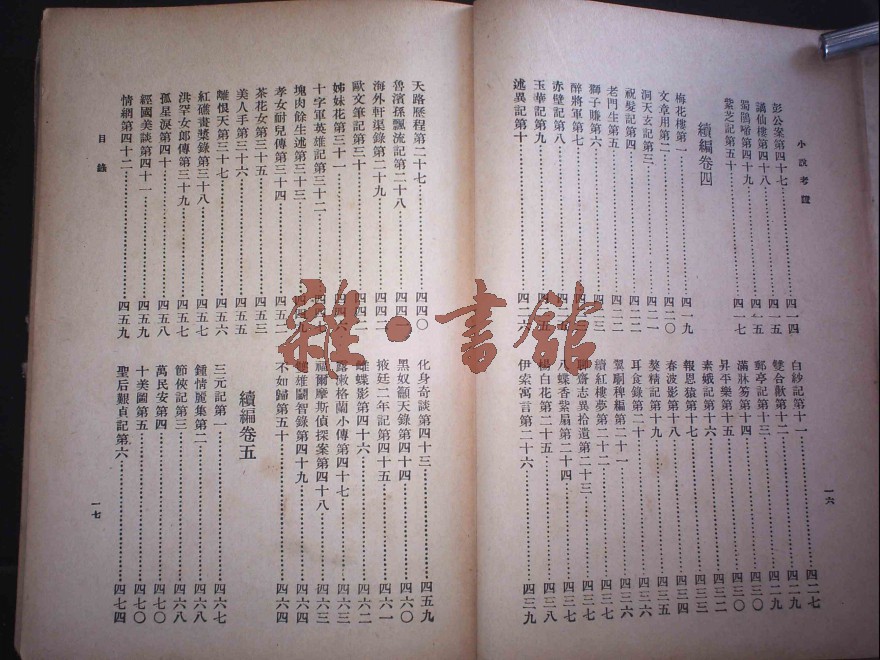 小說考證
彭公案第四十七……四一四
謫仙樓第四十八……四一五
蜀鵑啼第四十九……四一五
紫芝記第五十……四一七
續編卷四
梅花樓第一……四一九
文章用第二……四二〇
洞天玄記第三……四二一
祝髮記第四……四二二
老門生第五……四二二
獅子賺第六……四二三
醉將軍第七
赤壁記第八
玉華記第九
述異記第十……四二六
白紗記第十一……四二七
雙合歡第十二……四二九
郵亭記第十三……四三〇
滿牀笏第十四……四三〇
昇平樂第十五……四三二
素娥記第十六……四三三
報恩猿第十七……四三四
春波影第十八……四三五
獒精記第十九……四三六
耳食錄第二十……四三六
翼駉稗編第二十一……四三六
續紅樓夢第二十二……四三七
聊齋志異拾遺第二十三……四三七
八蝶香紫扇第二十四……四三八
楊白花第二十五……四三八
伊索寓言第二十六……四三九
一六
天路歷程第二十七……四四〇
魯濱孫飄流記第二十八
海外軒渠錄第二十九
歐文筆記第三十
姊妹花第三十一
十字軍英雄記第三十二
塊肉餘生述第三十三
孝女耐兒傳第三十四……四五二
茶花女第三十五……四五三
美人手第三十六……四五五
離恨天第三十七……四五六
紅礁畫槳錄第三十八……四五七
洪罕女郎傳第三十九……四五七
孤星淚第四十……四五八
經國美談第四十一……四五九
情網第四十二……四五九
目錄
化身奇談第四十三……四五九
黑奴籲天錄第四十四……四六〇
掖廷二年記第四十五……四六一
雌蝶影第四十六……四六二
露漱格蘭小傳第四十七……四六三
福爾摩斯偵探案第四十八……四六三
雄鬭智錄第四十九……四六四
不如歸第五十……四六四
續編卷五
三元記第一……四六七
鍾情麗集第二……四六八
節俠記第三……四六八
萬民安第四……四七〇
十美圖第五……四七〇
聖后艱貞記第六……四七四
一七
雜·書館